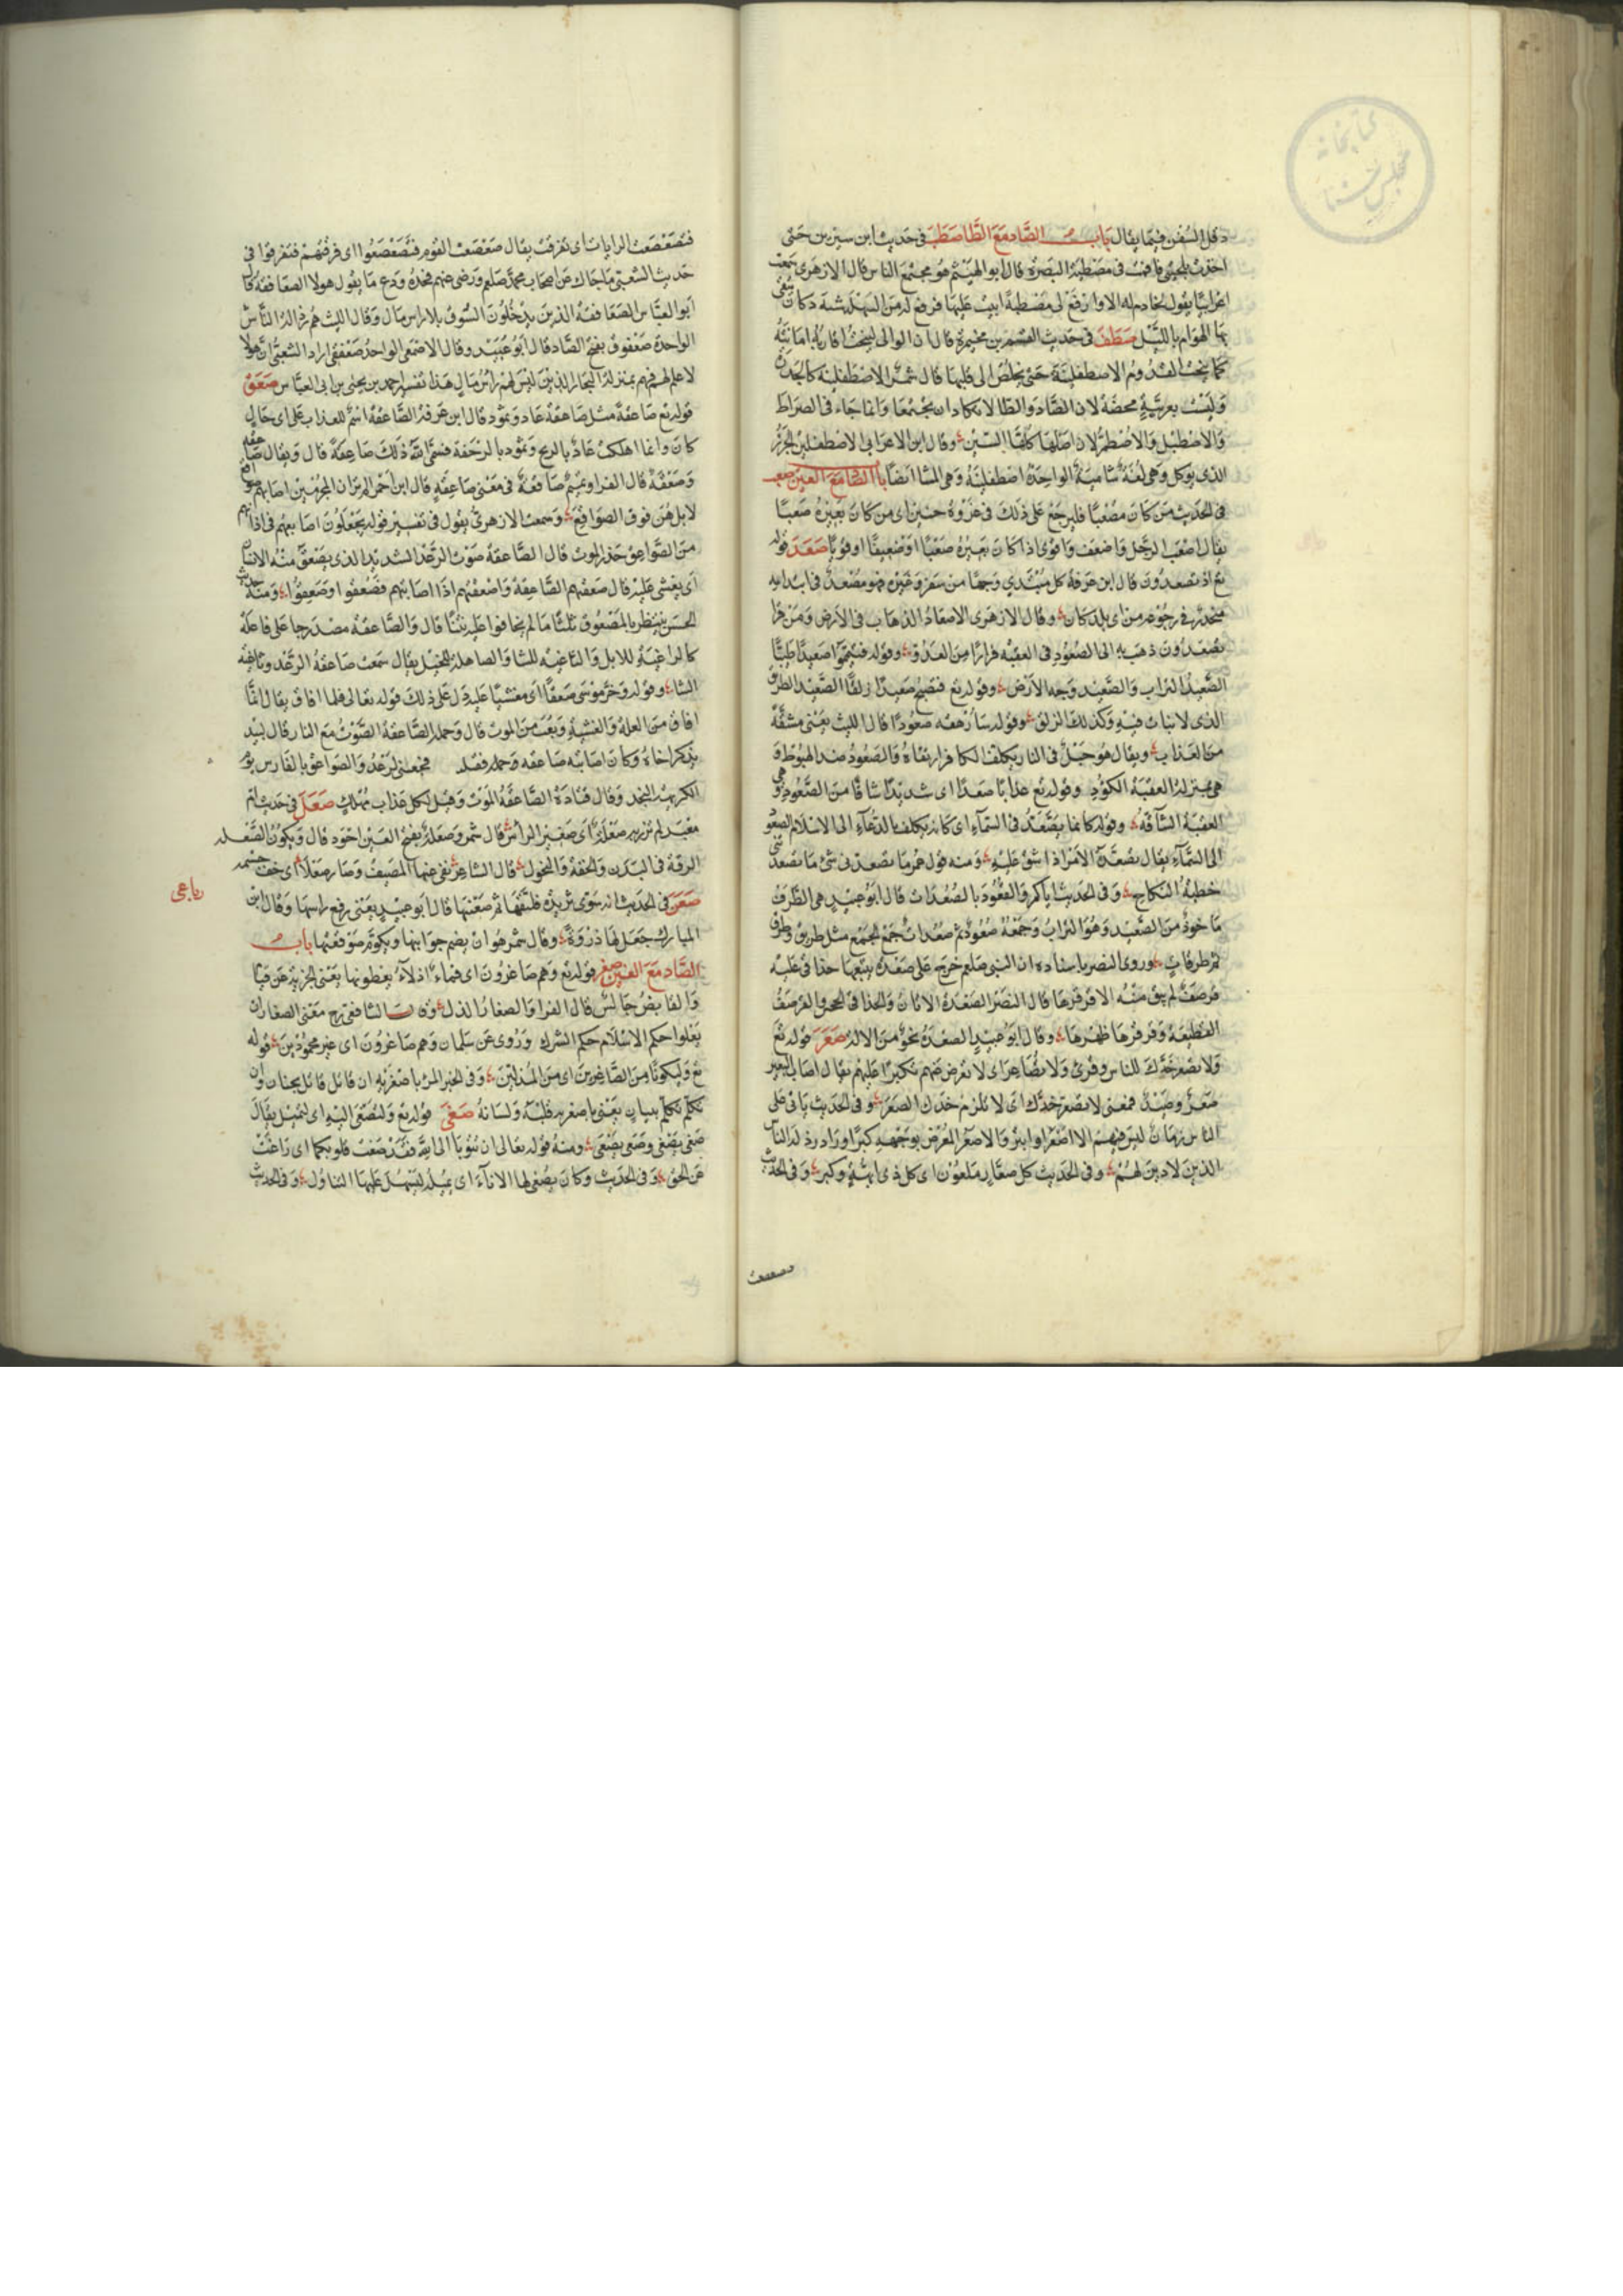 دقل السفن فيما يقال باب الصاد مع الطا صطب فى حديث ابن سيرين حتى
اخذت بلحيتى فاقمت فى مصطبة البصرة قال ابو الهيثم هو مجتمع الناس قال الازهرى سمعت
اعرابيا يقول لخادم له الا وارفع لى مصطبة ابيت عليها فرفع له من السهلة شبه دكان يتقى
بها الهوام بالليل صطف فى حديث القسم بن مخيمرة قال ان الوالى لينحت اقاربه امانته
كما ينحت القدوم الاصطفلينة حتى يخلص الى قلبها قال شمر الاصطفلينة كالجزرة
وليست بعربية محضة لان الصاد والطا لا تكادان تجتمعا وانما جاء فى الصراط
والاصطبل والاصطم لان اصلها كلها السين وقال ابن الاعرابى الاصطفلين الجزر
الذى يوكل وهى لغة شامية الواحدة اصطفلينة وهى المشا ايضا باب الصاد مع العين صعب
فى الحديث من كان مصعبا فليرجع على ذلك فى غزوة حنين اى من كان بعيره صعبا
يقال اصعب الرجل واضعف واقوى اذا كان بعيره صعبا او ضعيفا او قويا صعد قوله
تع اذ تصعدون قال ابن عرفة كل مبتدى وجها من سفر وغيره فهو مصعد فى ابتدايه
منحدر فى رجوعه من اى بلد كان وقال الازهرى الاصعاد الذهاب فى الارض ومن قرا
تصعدون ذهب به الى الصعود فى العقبة فرارا من العدو وقوله فتيمموا صعيدا طيبا
الصعيد التراب والصعيد وجه الارض وقوله تع فتصبح صعيدا زلقا الصعيد الطريق
الذى لا نبات فيه وكذلك الزلق وقوله سارهقه صعودا قال الليث يعنى مشقة
من العذاب ويقال هو جبل فى النار يكلف الكافر ارتقاه والصعود ضد الهبوط و
هى بمنزلة العقبة الكؤد وقوله تع عذابا صعدا اى شديدا شاقا من الصعود وهى
العقبة الشاقة وقوله كانما يصعد فى السماء اى كانه يكلف بالدعاء الى الاسلام الصعود
الى السماء يقال تصعد الامر اذا شق عليه ومنه قول عمر ما تصعدنى شئ ما تصعدتنى
خطبة النكاح وفى الحديث اياكم والقعود بالصعدات قال ابو عبيد هى الطرق
ماخوذ من الصعيد وهو التراب وجمعه صعود ثم صعدات جمع الجمع مثل طريق وطرق
ثم طرقات وروى النضر باسناده ان النبى صلعم خرج على صعدة يتبعها حذاقى عليه
قوصف لم يبق منه الا قرقرها قال النضر الصعدة الاتان والحذاقى الجحش والقرصف
القطيفة وقرقرها ظهرها وقال ابو عبيد الصعدة نحو من الالة صعر قوله تع
ولا تصعر خدك للناس وقرئ ولا تصاعر اى لا تعرض عنهم تكبرا عليهم يقال اصاب البعير
صعر وصيد فمعنى لا تصعر خدك اى لا تلزم خدك الصعر وفى الحديث ياتى على
الناس زمان ليس فيهم الا اصعر او ابتر والاصعر المعرض بوجهه كبرا واراد رذالة الناس
الذين لا دين لهم وفى الحديث كل صعار ملعون اى كل ذى ابهة وكبر وفى الحديث
فتصعصعت
فتصعصعت الرايات اى تفرقت يقال صعصعت القوم فتصعصعوا اى فرقتهم فتفرقوا فى
حديث الشعبى ما جاك عن اصحاب محمد صلعم ورضى عنهم فخذه ودع ما يقول هولا الصعافقة قال
ابو العباس الصعافقة الذين يدخلون السوق بلا راس مال وقال الليث هم رذالة الناس
الواحدة صعفوق بفتح الصاد قال ابو عبيد وقال الاصمعى الواحد صعفقى اراد الشعبى ان هولا
لا علم لهم فهم بمنزلة التجار الذين ليس لهم راس مال هذا تفسير احمد بن يحيى بن ابى العباس صعق
قوله تع صاعقة مثل صاعقة عاد وثمود قال ابن عرفة الصاعقة اسم للعذاب على اى حال
كان وانما اهلكت عاد بالريح وثمود بالرجفة فسمى الله ذلك صاعقة قال ويقال صاعقة
وصعقة قال الفرا وتميم صاقعة فى معنى صاعقة قال ابن احمر الم تر ان المجرمين اصابهم صواقع
لا بل هن فوق الصواقع وسمعت الازهرى يقول فى تفسير قوله يجعلون اصابعهم فى اذانهم
من الصواعق حذر الموت قال الصاعقة صوت الرعد الشديد الذى يصعق منه الانسان
اى يغشى عليه قال صعقتهم الصاعقة واصعقتهم اذا اصابتهم فصعقوا وصعقوا ومنه حديث
الحسن ينتظر بالمصعوق ثلثا ما لم يخافوا عليه نتنا قال والصاعقة مصدر جا على فاعلة
كالراغية للابل والثاغية للشا والصاهلة للخيل يقال سمعت صاعقة الرعد وثاغية
الشا وقوله وخر موسى صعقا اى مغشيا عليه دل على ذلك قوله تعالى فلما افاق يقال انما
افاق من العلة والغشية وبعث من الموت قال وجملة الصاعقة الصوت مع النار قال لبيد
يذكر اخاه وكان اصابته صاعقة وجمله فقتله فجعنى الرعد والصواعق بالفارس يوم
الكريهة النجد وقال قتادة الصاعقة الموت وقيل كل عذاب مهلك صعل فى حديث ام
معبد لم تزر به صعلة اى صغير الراس قال شمر وصعلة بفتح العين اجود قال ويكون الصعلة
الرقة فى البدن والخفة والنحول قال الشاعر نفى عنها المصيف وصار صعلا اى خف جسمه
رباعى
صعن فى الحديث انه سوى ثريدة فلبقها ثم صعنبها قال ابو عبيد يعنى رفع راسها وقال ابن
المبارك جعل لها ذروة وقال شمر هو ان يضم جوانبها ويكوم صومعتها باب
الصاد مع الغين صغر قوله تع وهم صاغرون اى قماء اذلاء يعطونها يعنى الجزية عن قيام
والقابض جالس قال الفرا والصغار الذل وقال الشافعى رح معنى الصغار ان
يعلوا حكم الاسلام حكم الشرك وروى عن سلمان وهم صاغرون اى غير محمودين قوله
تع وليكونا من الصاغرين اى من المذلين وفى الخبر المرء باصغريه ان قاتل قاتل بجنان وان
تكلم تكلم ببيان يعنى باصغريه قلبه ولسانه صغى قوله تع ولتصغى اليه اى لتميل يقال
صغى يصغى وصغى يصغى ومنه قوله تعالى ان تتوبا الى الله فقد صغت قلوبكما اى زاغت
عن الحق وفى الحديث وكان يصغى لها الاناء اى يميله ليسهل عليها التناول وفى الحديث